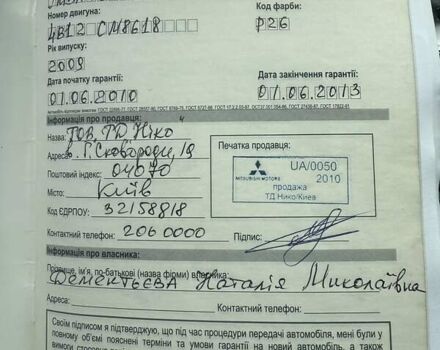 Номер двигуна: Код фарби:
4B12 CM8618 P26
Рік випуску
2009
Дата початку гарантії: Дата закінчення гарантії:
01.06.2010 01.06.2013
Інформація про продавця:
Назва: ТОВ „ТД Ніко
Адреса: в. Г. Сковороди, 19
Поштовий індекс: 04070
Місто: Київ
Код ЄДРПОУ: 32158818
Контактний телефон: 2060000 Підпис:
Печатка продавця:
MITSUBISHI MOTORS
UA/0050
2010
продажа
ТД Нико/Киев
Інформація про власника:
Прізвище, ім'я, по-батькові (назва фірми) власника:
Дементьєва Наталія Миколаївна
Адреса: Контактний телефон:
Своїм підписом я підтверджую, що під час процедури передачі автомобіля, мені були у
повному об'ємі пояснені терміни та умови гарантії на новий автомобіль, а також